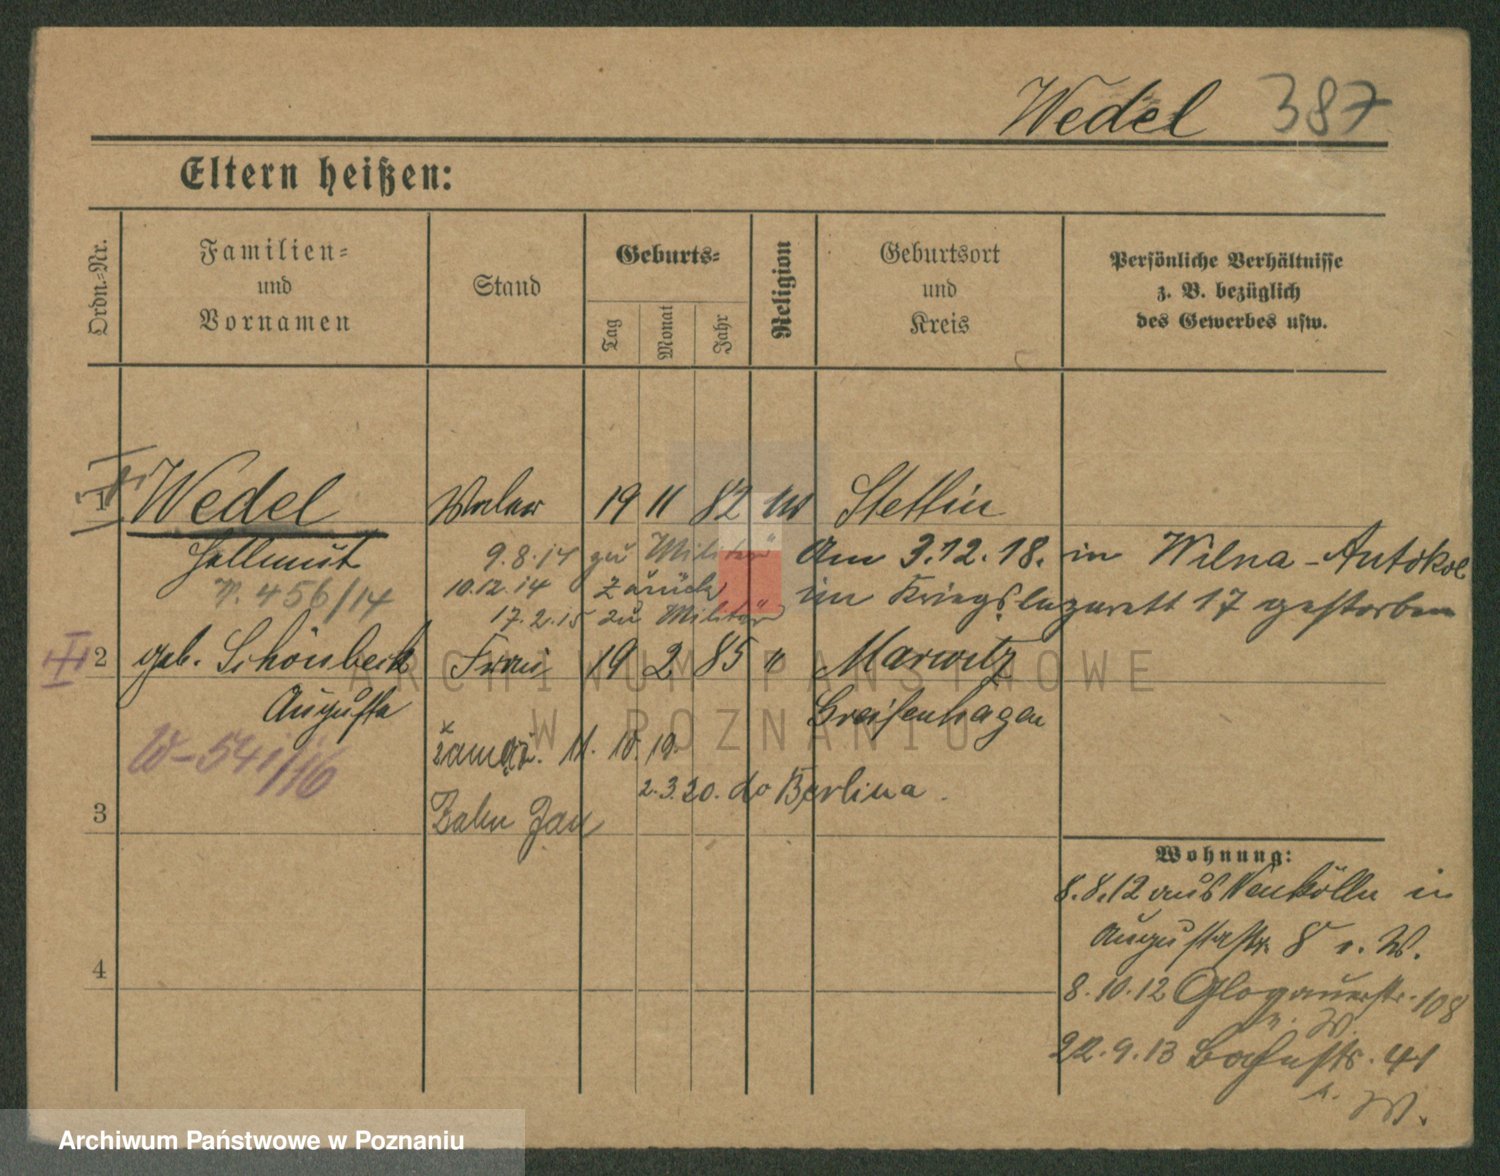 Wedel 387
Eltern heißen:
Ordn.-Nr.
Familien-
und
Vornamen
Stand
Geburts-
Tag
Monat
Jahr
Religion
Geburtsort
und
Kreis
Persönliche Verhältnisse
z. B. bezüglich
des Gewerbes usw.
1 Wedel Maler 19 11 82 Stettin
Hellmut 9.8.14 zu Militär Am 3.12.18. in Wilna-Antokol
N. 456/14 10.12.14 zurück im Kriegslazarett 17 gestorben
17.2.15 zu Militär
2 geb. Schönbeck Frau 19 2 85 " Marwitz
Augusta Greifenhagen
W-541/16 zamęż. 11. 10. 19.
2.3.20. do Berlina.
3 Zahn Jan
Wohnung:
8.8.12 aus Neukölln in
Augustastr. 8 b. W.
4
8.10.12 Glogauerstr. 108
b. W.
22.9.13 41
b. W.
ARCHIWUM PAŃSTWOWE
W POZNANIU
Archiwum Państwowe w Poznaniu